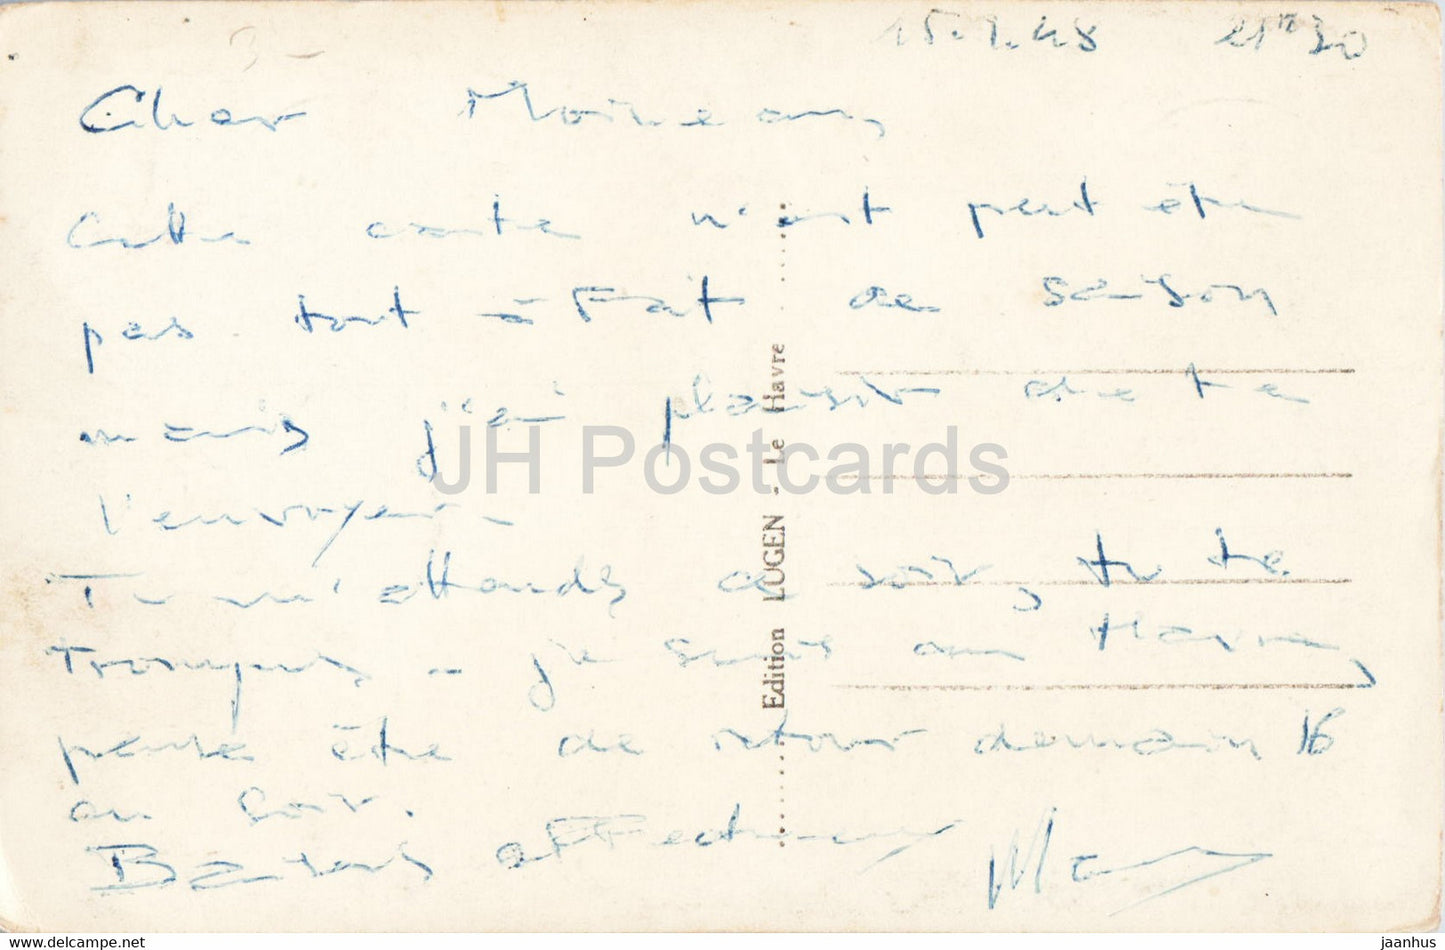 15.1.48 21h30
Cher Moineau,
Cette carte n'est peut être
pas tout à fait de saison
mais j'ai plaisir de te
l'envoyer.
Tu m'attends ce soir, tu te
trompes - je suis au Havre,
pense être de retour demain 16
au soir.
Baisers affectueux
Edition LUGEN - Le Havre
JH Postcards
delcampe.net
jaanhus